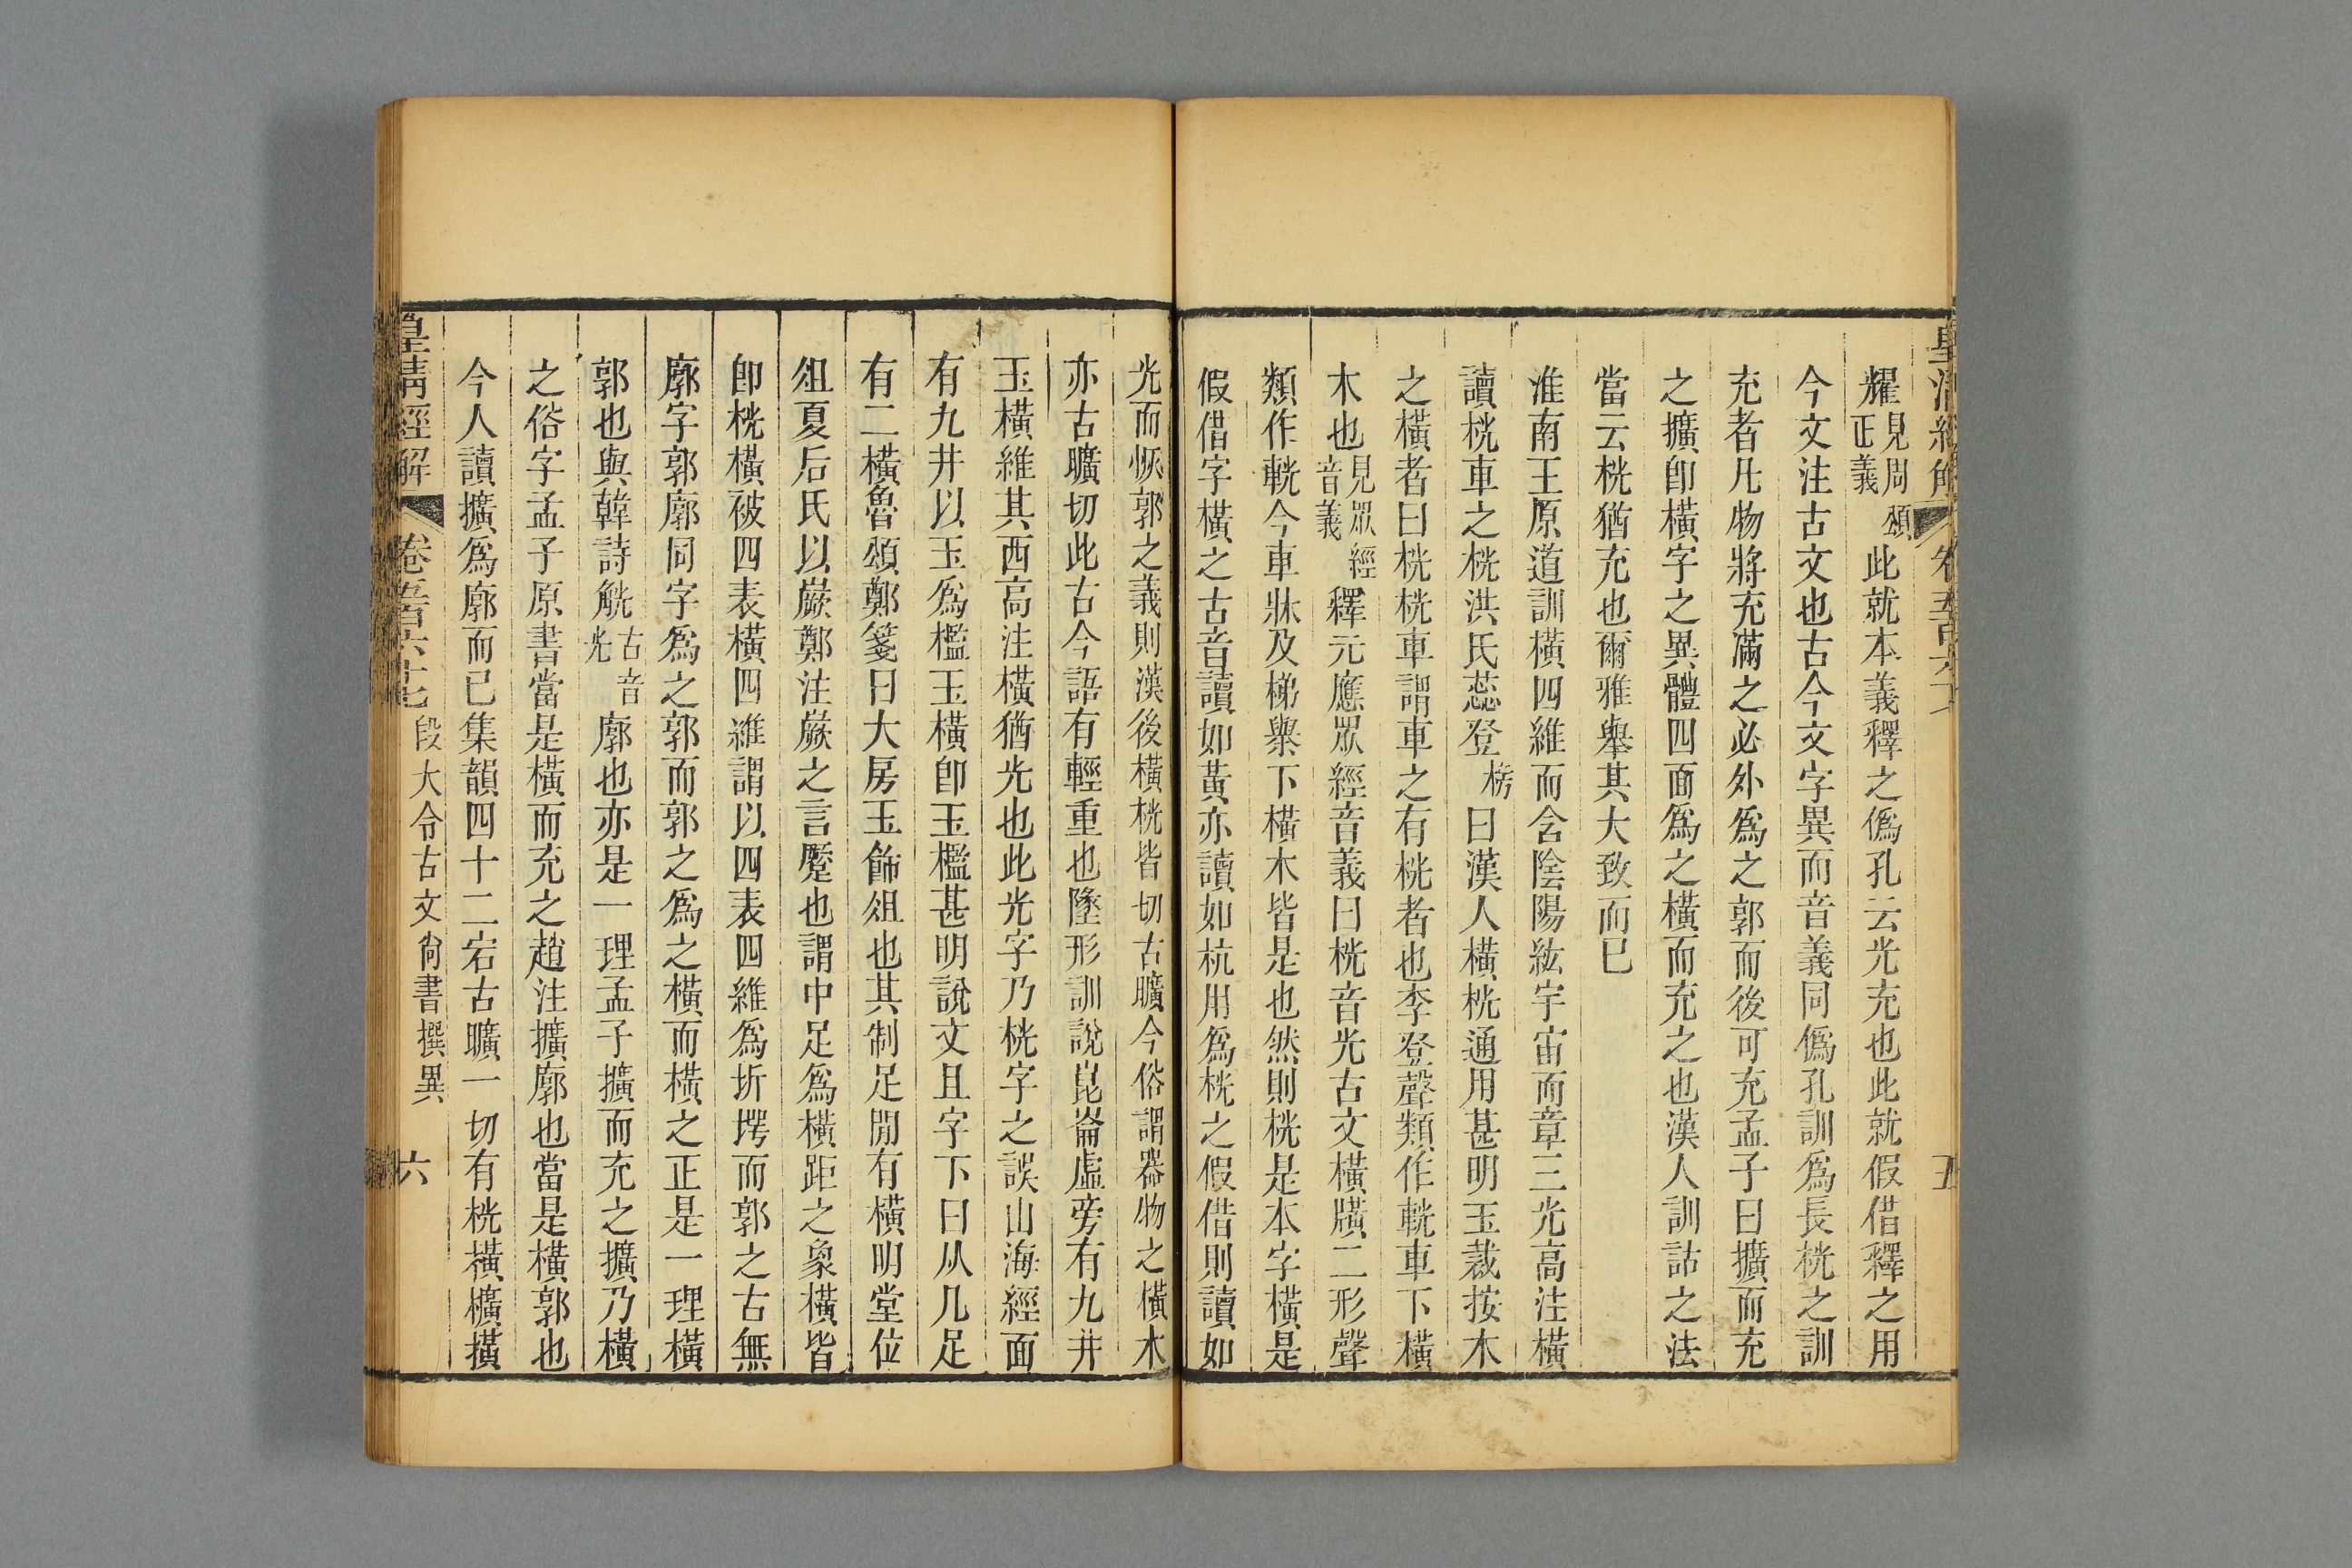 皇清經解 卷五百六十七 五
耀見周頌正義此就本義釋之僞孔云光充也此就假借釋之用
今文注古文也古今文字異而音義同僞孔訓爲長桄之訓
充者凡物將充滿之必外爲之郭而後可充孟子曰擴而充
之擴卽橫字之異體四面爲之橫而充之也漢人訓詁之法
當云桄猶充也爾雅舉其大致而已
淮南王原道訓橫四維而含陰陽紘宇宙而章三光高注橫
讀桄車之桄洪氏蕊登榜曰漢人橫桄通用甚明玉裁按木
之橫者曰桄桄車謂車之有桄者也李登聲類作輄車下橫
木也見眾經音義釋元應眾經音義曰桄音光古文橫㶇二形聲
類作輄今車牀及梯舉下橫木皆是也然則桄是本字橫是
假借字橫之古音讀如黃亦讀如杭用爲桄之假借則讀如
光而恢郭之義則漢後橫桄皆切古曠今俗謂器物之橫木
亦古曠切此古今語有輕重也墬形訓說崑崙虛旁有九井
玉橫維其西高注橫猶光也此光字乃桄字之誤山海經面
有九井以玉爲檻玉橫卽玉檻甚明說文且字下曰从几足
有二橫魯頌鄭箋曰大房玉飾俎也其制足閒有橫明堂位
俎夏后氏以嶡鄭注嶡之言蹷也謂中足爲橫距之象橫皆
卽桄橫被四表橫四維謂以四表四維爲圻堮而郭之古無
廓字郭廓同字爲之郭而郭之爲之橫而橫之正是一理橫
郭也與韓詩觥古音光廓也亦是一理孟子擴而充之擴乃橫
之俗字孟子原書當是橫而充之趙注擴廓也當是橫郭也
今人讀擴爲廓而已集韻四十二宕古曠一切有桄橫櫎擴
皇清經解 卷五百六十七 段大令古文尙書撰異 六